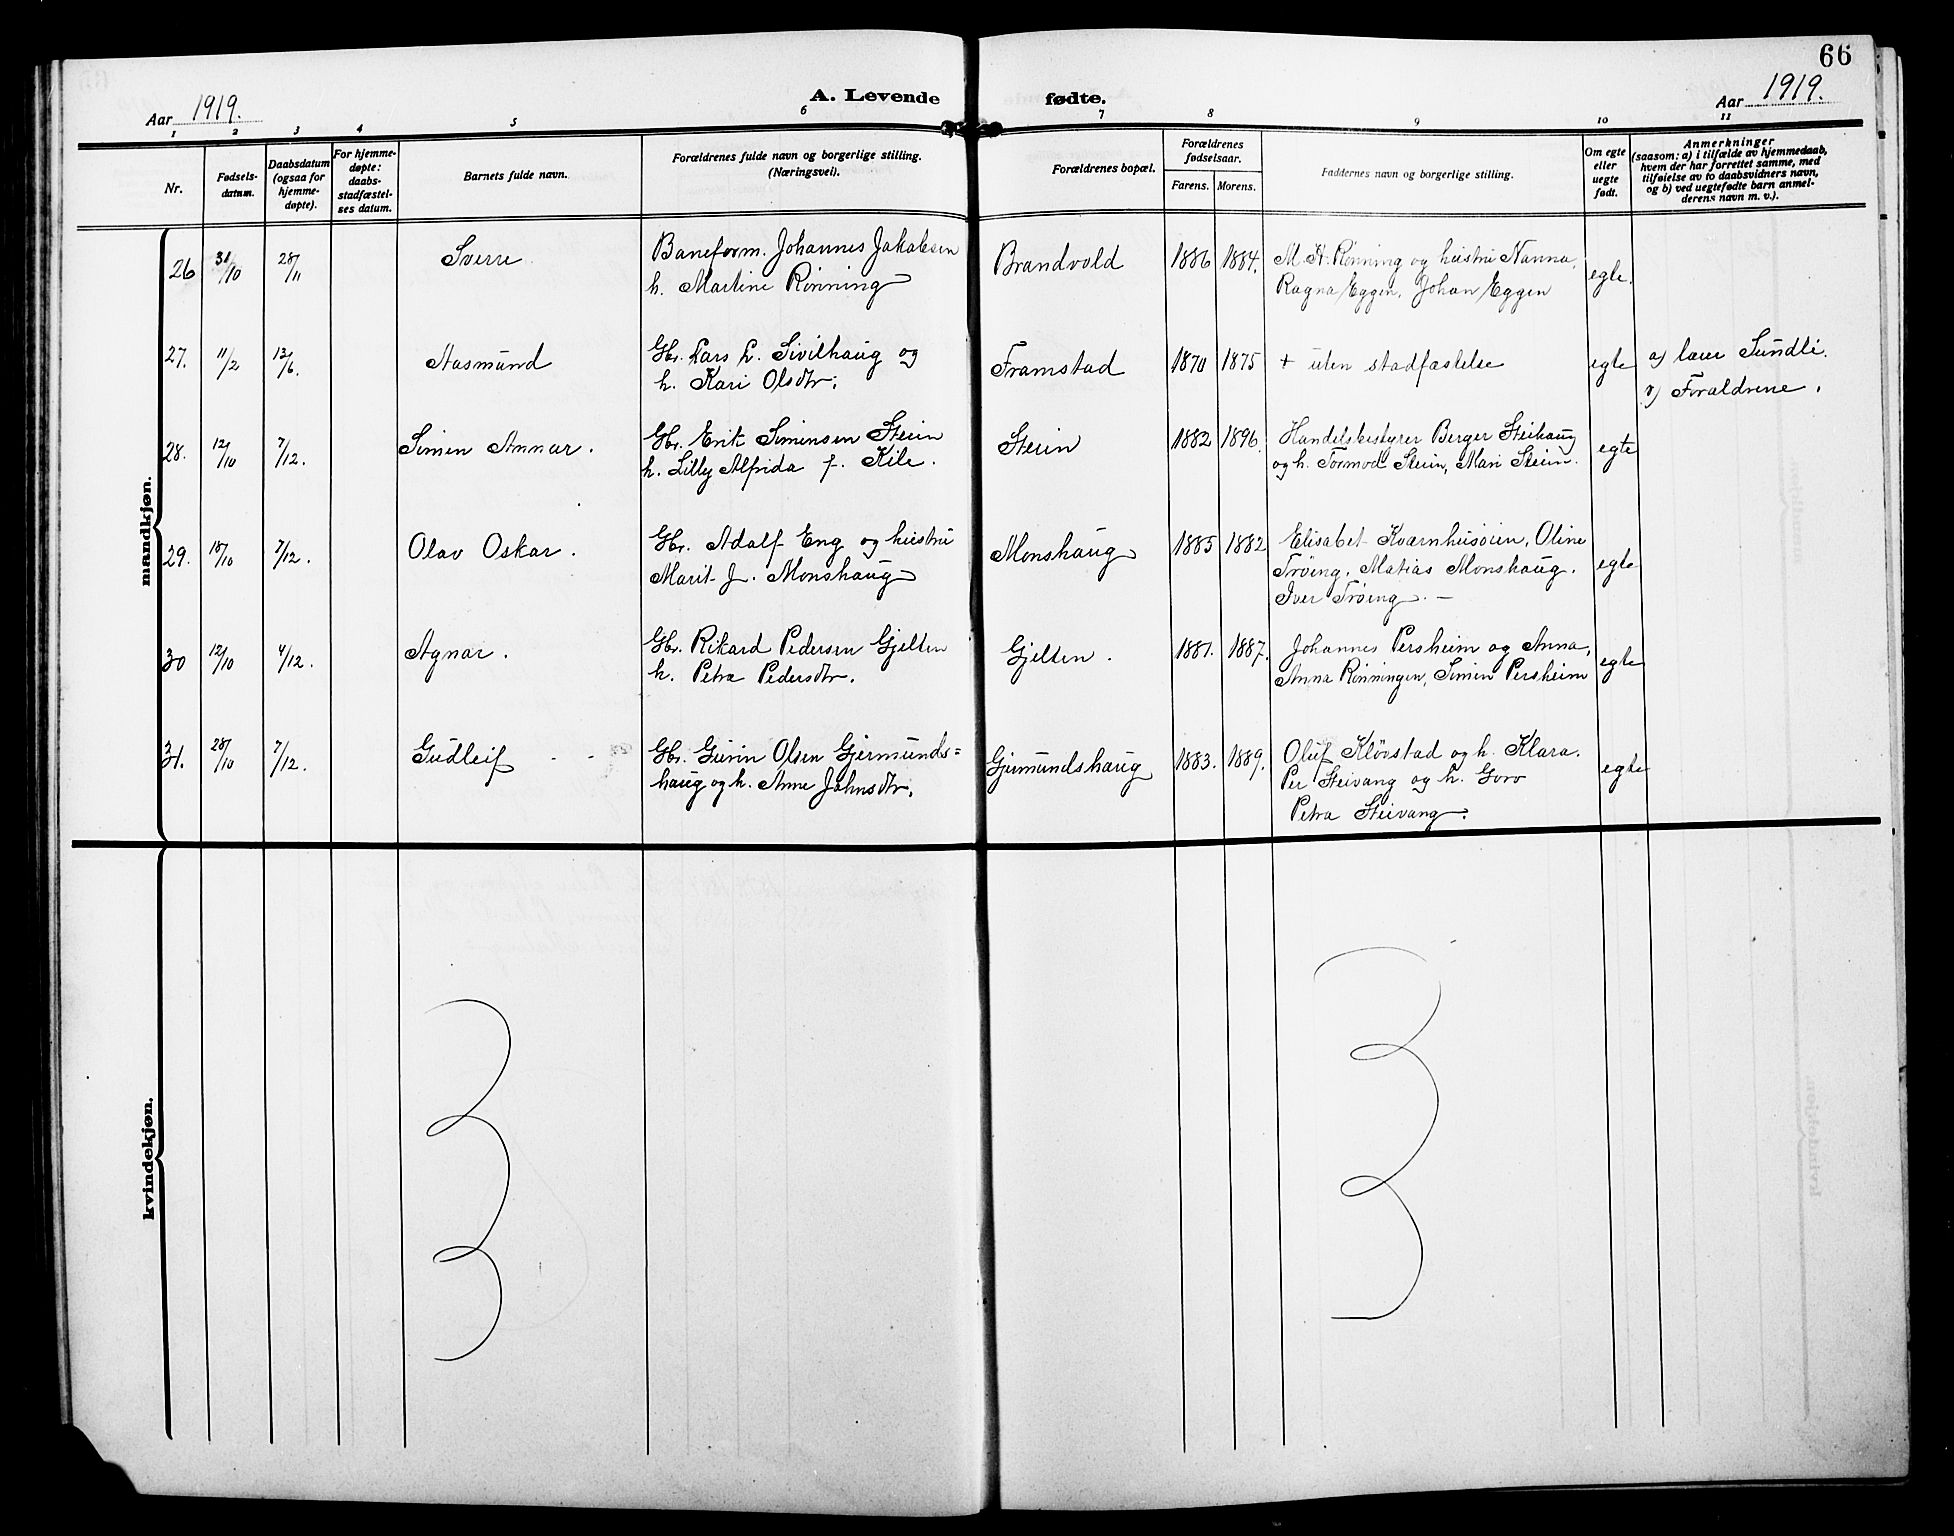 66
Aar 1919.
A. Levende fødte.
Aar 1919.
1 2 3 4 5 6 7 8 9 10 11
Nr.
Fødsels-
datum.
Daabsdatum
(ogsaa for
hjemme-
døpte).
For hjemme-
døpte:
daabs-
stadfæstel-
ses datum.
Barnets fulde navn.
Forældrenes fulde navn og borgerlige stilling.
(Næringsvei).
Forældrenes bopæl.
Forældrenes
fødselsaar.
Farens. Morens.
Faddernes navn og borgerlige stilling.
Om egte
eller
uegte
født.
Anmerkninger
(saasom: a) i tilfælde av hjemmedaab,
hvem der har forrettet samme, med
tilføielse av to daabsvidners navn,
og b) ved uegtefødte barn anmel-
derens navn m. v.).
mandkjøn.
26 /10 28/11 Sverre Baneform. Johannes Jakobsen
h. Martine Rønning
Brandvold 1886 1884. M. H. Rønning og hustru Nanna,
Ragna Eggen, Johan Eggen
egte.
27. 11/2 /6. Aasmund Gbr. Lars L. Sivilhaug og
h. Kari Olsdtr.
Framstad 1870 1875 + uten stadfæstelse egte a) lærer Sundli.
Forældrene.
28. 12/10 7/12. Simen Annar. Gbr. Erik Simensen Steien
h. Lilly Alfrida f. Kile.
Steien 1882 1896. Handelsbestyrer Berger Steihaug
og h. Tormod Steien, Mari Steien.
egte
29. 18/10 7/12. Olav Oskar. Gbr. Adolf Eng og hustru
Marit J. Monshaug
Monshaug 1885 1882 Elisabet Kvernhusøien, Oline
Trøeng, Matias Monshaug.
Iver Trøeng. —
egte
30 12/10 /12. Agnar. Gbr. Rikard Pedersen Gjelten
h. Petra Pedersdtr.
Gjelten. 1881. 1887. Johannes Persheim og Anna,
Anna Rønningen, Simen Persheim
egte
31. 28/10 7/12. Gudleif Gbr. Gunn Olsen Gjermunds=
haug og h. Anne Johnsdtr.
Gjermundshaug 1883. 1889. Oluf Kløvstad og h. Klara.
Per Steivang og h. Goro
Petra Steivang.
egte
kvindekjøn.